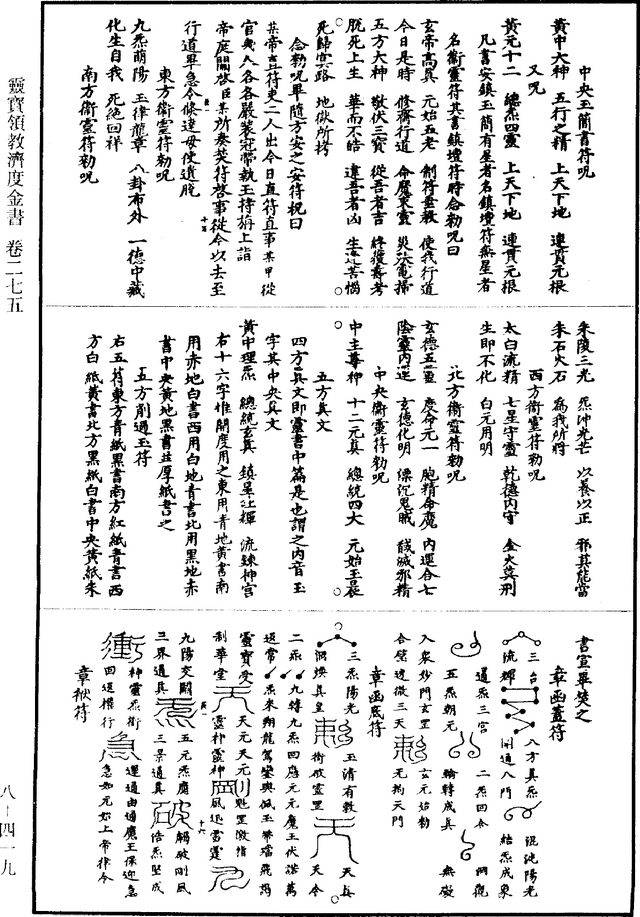 中央玉簡書符呪
黃中大神 五行之精 上天下地 連貫元根
又呪
黃元十二 總炁四靈 上天下地 連貫元根
凡書安鎮玉簡有星者名鎮壇符無星者
名衛靈符其書鎮壇符時念勅呪曰
玄帝高真 元始五老 制符 使我行道
今日是時 修齋行道 命魔束靈 災 電掃
五方大神 敬伏三寶 從吾者吉 終獲壽考
脫死上生 華而不皓 違吾者凶 生遭苦惱
死歸冥路 地獄所拷
念勅呪畢隨方安之安符祝曰
某帝直符吏二人出今日直符直事某甲從
官幾人各各嚴裝冠帶執玉持 上詣
帝庭關啓臣某所奏 符啓事從今以去至
行道畢急令條達毋使遺脫
東方衛靈符勅呪
九炁萌陽 玉律龍章 八卦布外 一德中藏
化生自我 死絕回祥
南方衛靈符勅呪
朱陵三光 炁沖光芒 以養以正 邪其能當
朱石火石 為我所將
西方衛靈符勅呪
太白流精 七星守靈 乾德內守 金火莫刑
生即不化 白元用明
北方衛靈符勅呪
玄德五靈 慶命元一 胞精命魔 內運合七
陰靈內運 玄德化明 漂沉鬼賊 馘滅邪精
中央衛靈符勅呪
中主尊神 十二元真 總統四大 元始玉晨
五方真文
四方真文即靈書中篇是也謂之內音玉
字其中央真文
黃中理炁 總統玄真 鎮星吐輝 流鍊神宮
右十六字惟開度用之東用青地黃書南
用赤地白書西用白地青書北用黑地赤
書中央黃地黑書並厚紙書之
五方削過玉符
右五符東方青紙黑書南方紅紙青書西
方白紙黃書北方黑紙白書中央黃紙朱
書宣畢焚之
章函蓋符
三台 八方真炁 混沌陽光
流輝 開通八門 結炁成象
通炁三宮 二炁回合 洞觀
五炁朝元 輪轉成真 無礙
入眾妙門玄罡 玄元始勅
合璧邊徹三天 无拘天門
章函底符
三炁陽光 玉清有敕 天真
洞煥真皇 衛 靈罡 天令
二炁 九轉九炁四應元元魔王伏諾萬
迎常 炁來翔龍駕鑾輿佩玉帶璫飛鴻
靈寶受 天元天元 魁罡激指
制華堂 靈神靈神 風迅雷霆
九陽交關 五元炁魔 觸破剛風
三界通真 三景通真 浩炁堅成
神靈炁衛 運過由通魔王保迎急
四運攝行 急如元始上帝律令
章 符
靈寶領教濟度金書 卷二七五
八-四一九